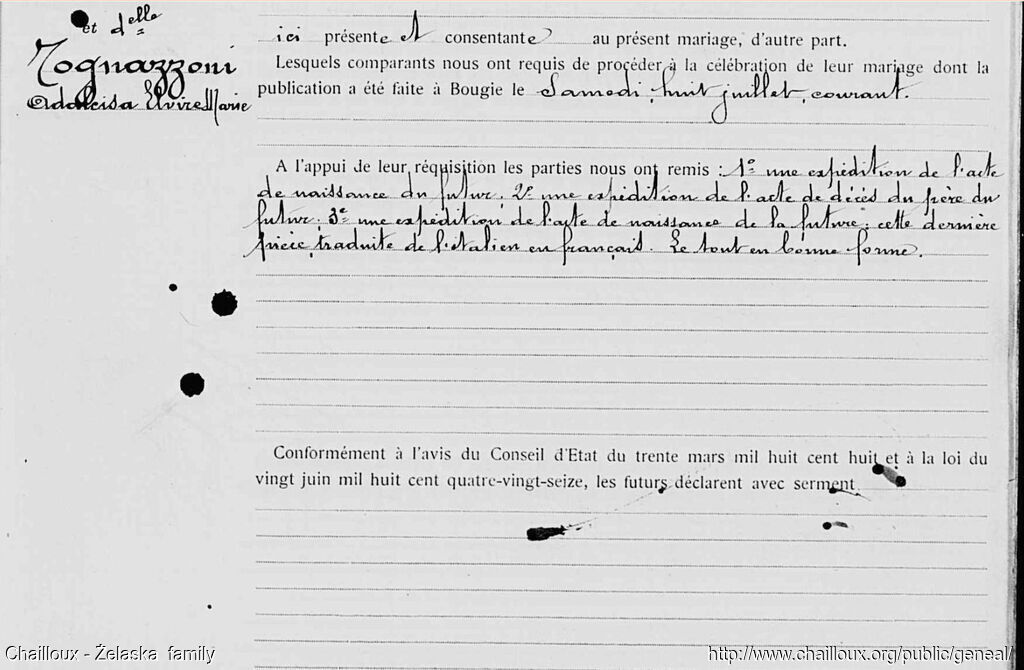 et d^elle
Tognazzoni
Adalcisa Elvire Marie
ici présente et consentante au présent mariage, d'autre part.
Lesquels comparants nous ont requis de procéder à la célébration de leur mariage dont la
publication a été faite à Bougie le Samedi, huit juillet, courant.
A l'appui de leur réquisition les parties nous ont remis : 1° une expédition de l'acte
de naissance du futur; 2° une expédition de l'acte de décès du père du
futur; 3° une expédition de l'acte de naissance de la future; cette dernière
pièce traduite de l'italien en français. Le tout en bonne forme.
Conformément à l'avis du Conseil d'Etat du trente mars mil huit cent huit et à la loi du
vingt juin mil huit cent quatre-vingt-seize, les futurs déclarent avec serment
Chailloux - Želaska family
http://www.chailloux.org/public/geneal/